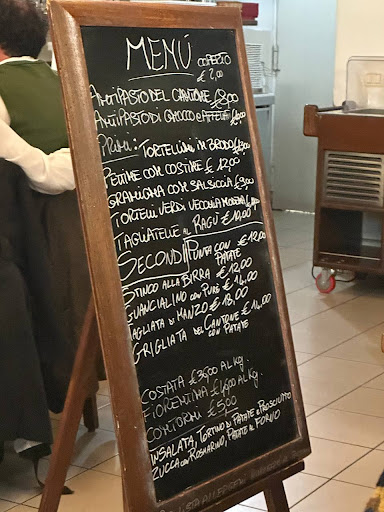 MENÚ
COPERTO
€ 2,00
ANTIPASTO DEL CANTONE
ANTIPASTO DI GNOCCO E AFFETTATI
PRIMI: TORTELLINI IN BRODO
PETTINE CON COSTINE € 12,00
GRAMIGNA CON SALSICCIA €
TORTELLI VERDI VECCHIA MODENA
TAGLIATELLE AL RAGÙ € 10,00
SECONDI PUNTA CON PATATE € 12,00
STINCO ALLA BIRRA € 12,00
GUANCIALINO CON PURÈ € 14,00
TAGLIATA DI MANZO € 18,00
GRIGLIATA DEL CANTONE CON PATATE € 14,00
COSTATA € AL KG.
FIORENTINA € AL KG.
CONTORNI € 5,00
INSALATA, TORTINO DI PATATE E PROSCIUTTO
ZUCCA CON ROSMARINO, PATATE AL FORNO